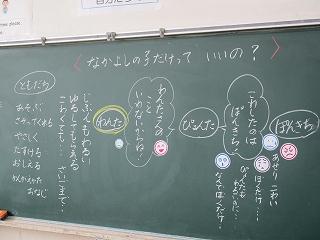 <なかよしの子だけって いいの?>
ぽんきち
あせり こわい
ぼくだけ…
ぴょんたも
なんでぼくだけ?
こわしたのは
ぽんきち。
ぴょんた
わんたさんの
こと
いわないからね!
わんた
じぶんもわるい
ゆるしてもらえる
こわくても…
さいごまで…
ともだち
あそぶ
さそってくれる
やさしく
たすける
おしえる
かんがえかた
おなじ